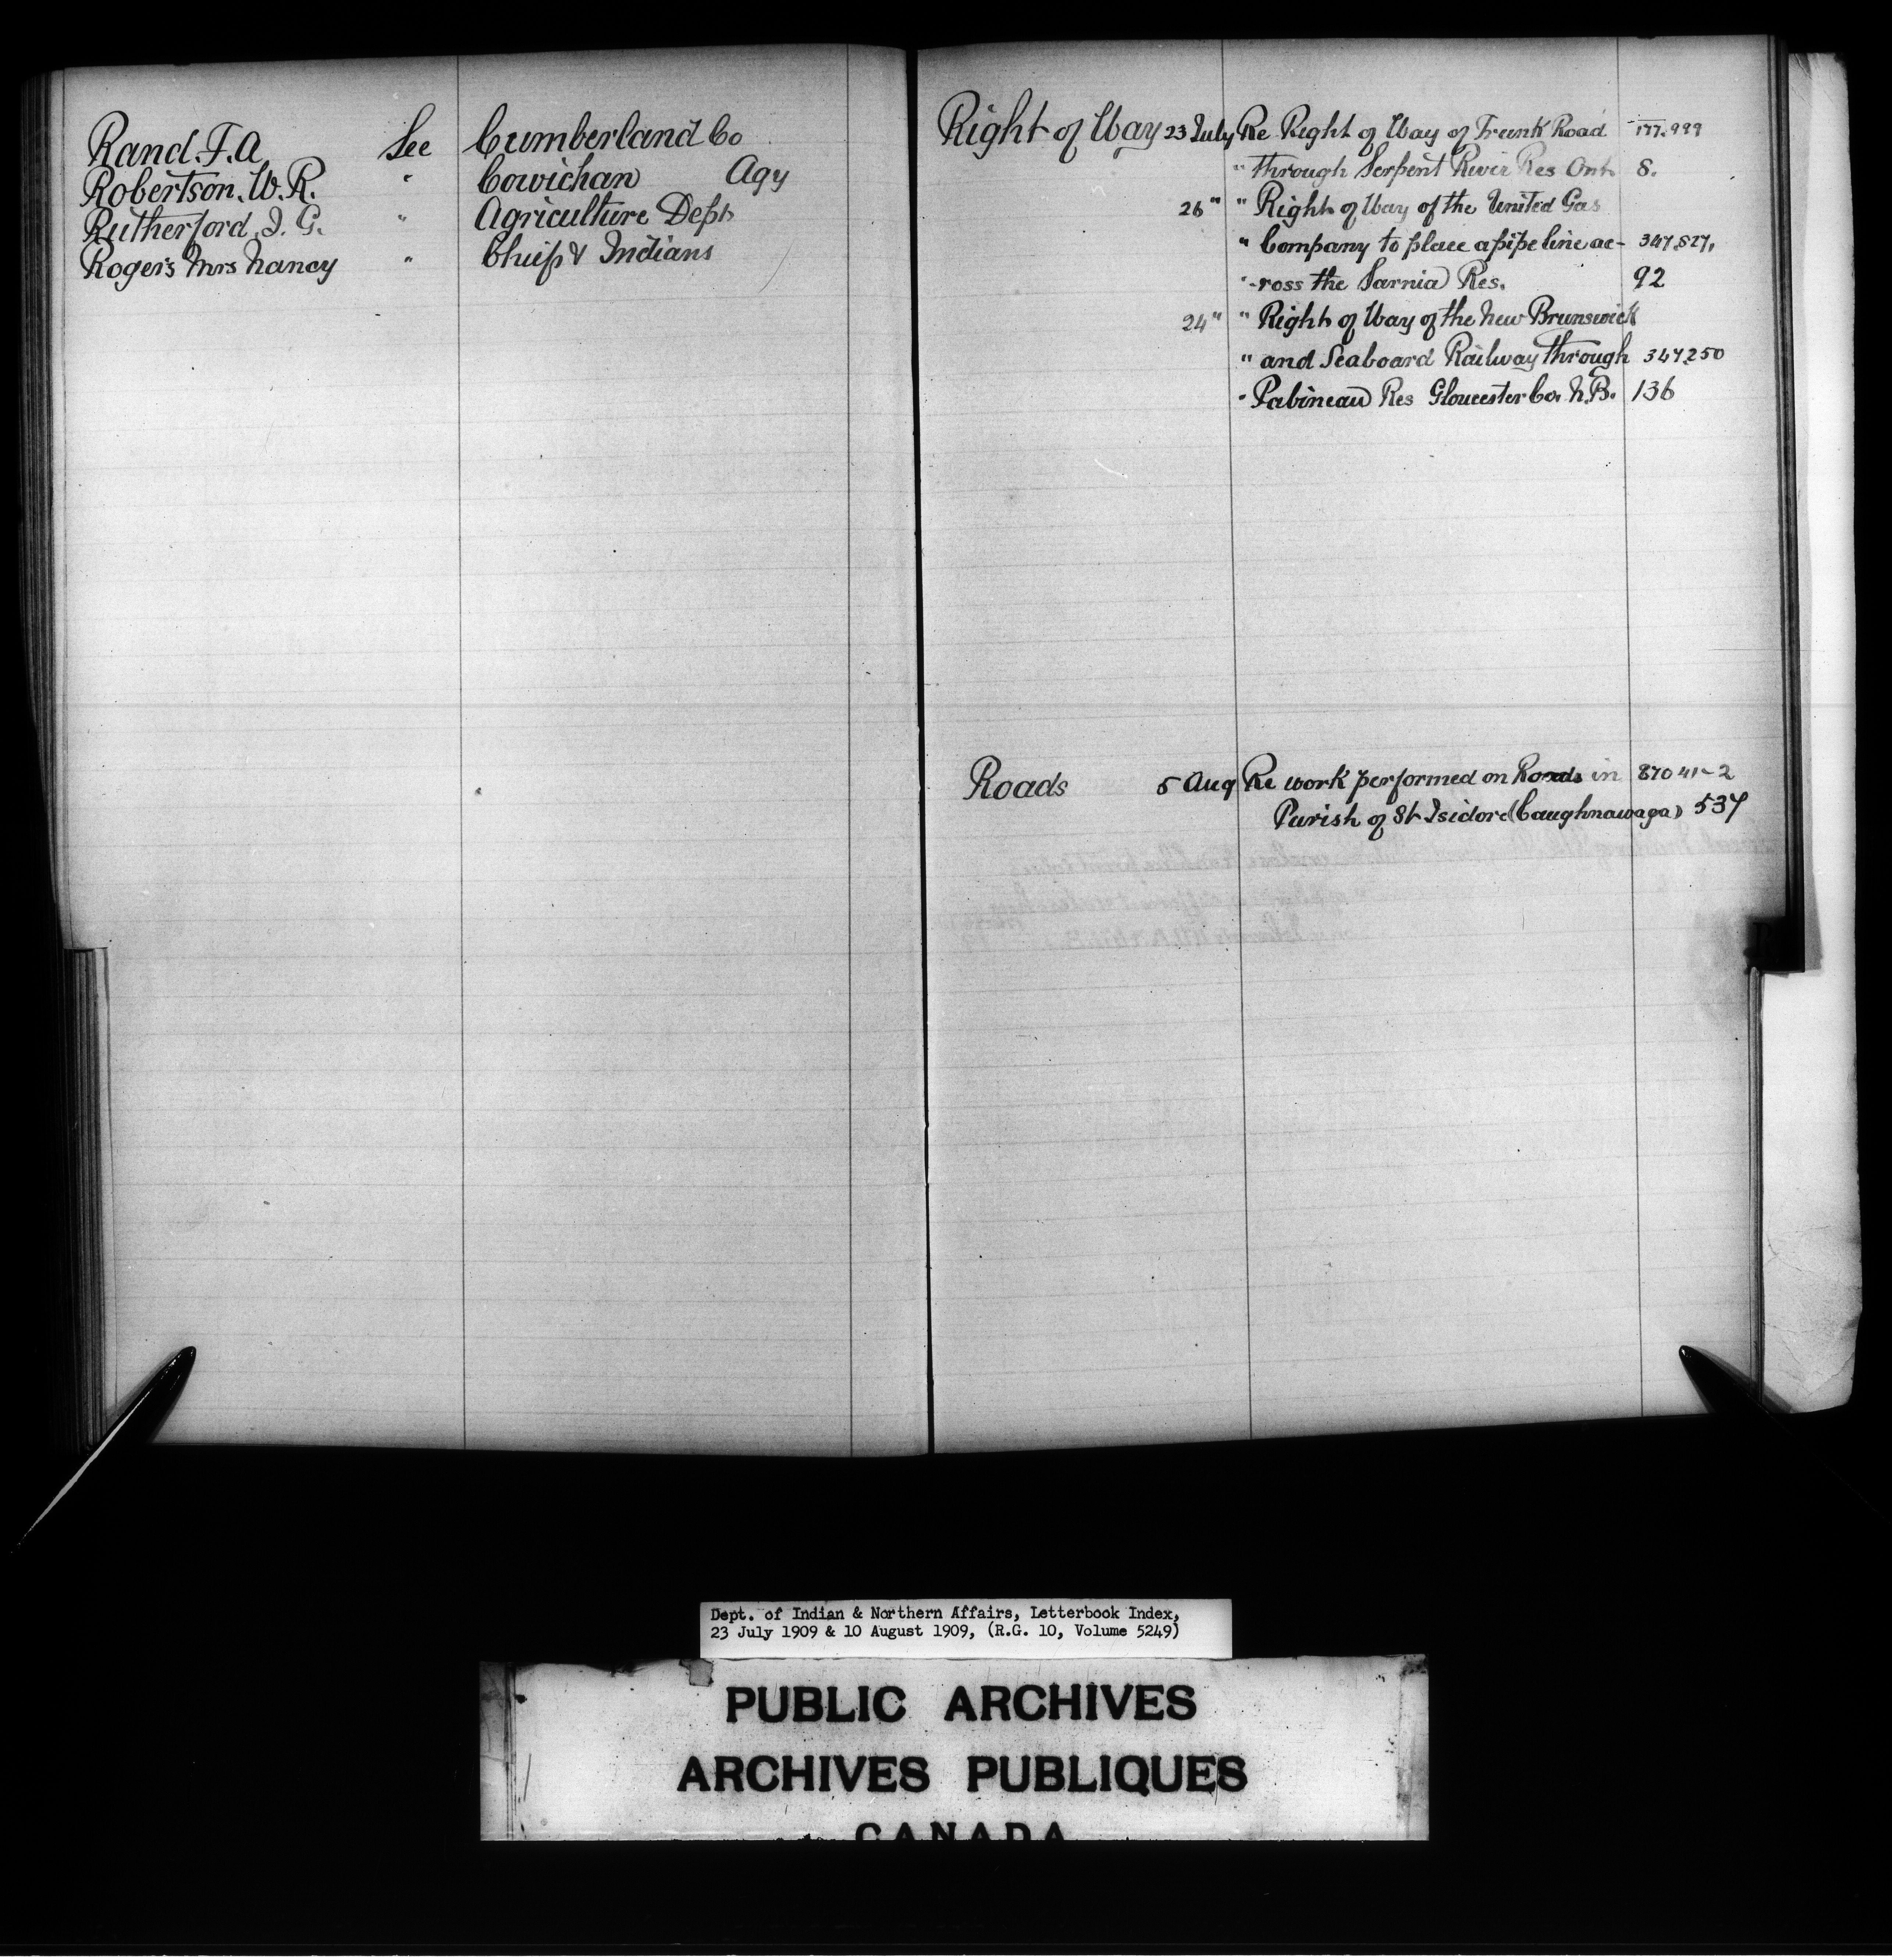 Rand. F. A. See Cumberland Co
Robertson. W. R. " Cowichan Agy
Rutherford. J. G. " Agriculture Dept
Rogers Mrs Nancy " Chief & Indians
Right of Way 23 July Re Right of Way of Trunk Road 177.999
" through Serpent River Res Ont. 8.
26 " " Right of Way of the United Gas
" Company to place a pipe line ac- 347,827.
" -ross the Sarnia Res. 92
24 " " Right of Way of the New Brunswick
" and Seaboard Railway through 347250
" Pabineau Res Gloucester Co. N.B. 136
Roads 5 Aug Re work performed on Roads in 87041-2
Parish of St Isidore (Caughnawaga) 537
Dept. of Indian & Northern Affairs, Letterbook Index,
23 July 1909 & 10 August 1909, (R.G. 10, Volume 5249)
PUBLIC ARCHIVES
ARCHIVES PUBLIQUES
CANADA